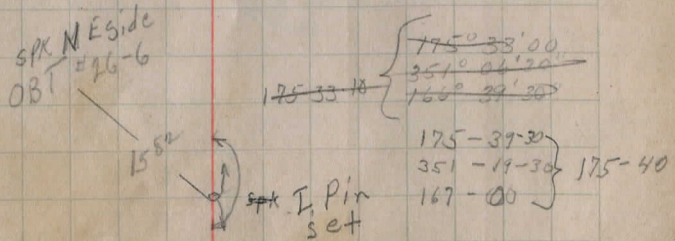 SPK N E Side
OBT #26-6
15⁸²
spk I Pin
set
175 33 10
175° 33' 00
351° 06' 20"
166° 39' 30
175-39-30
351-19-30
167-00
175-40